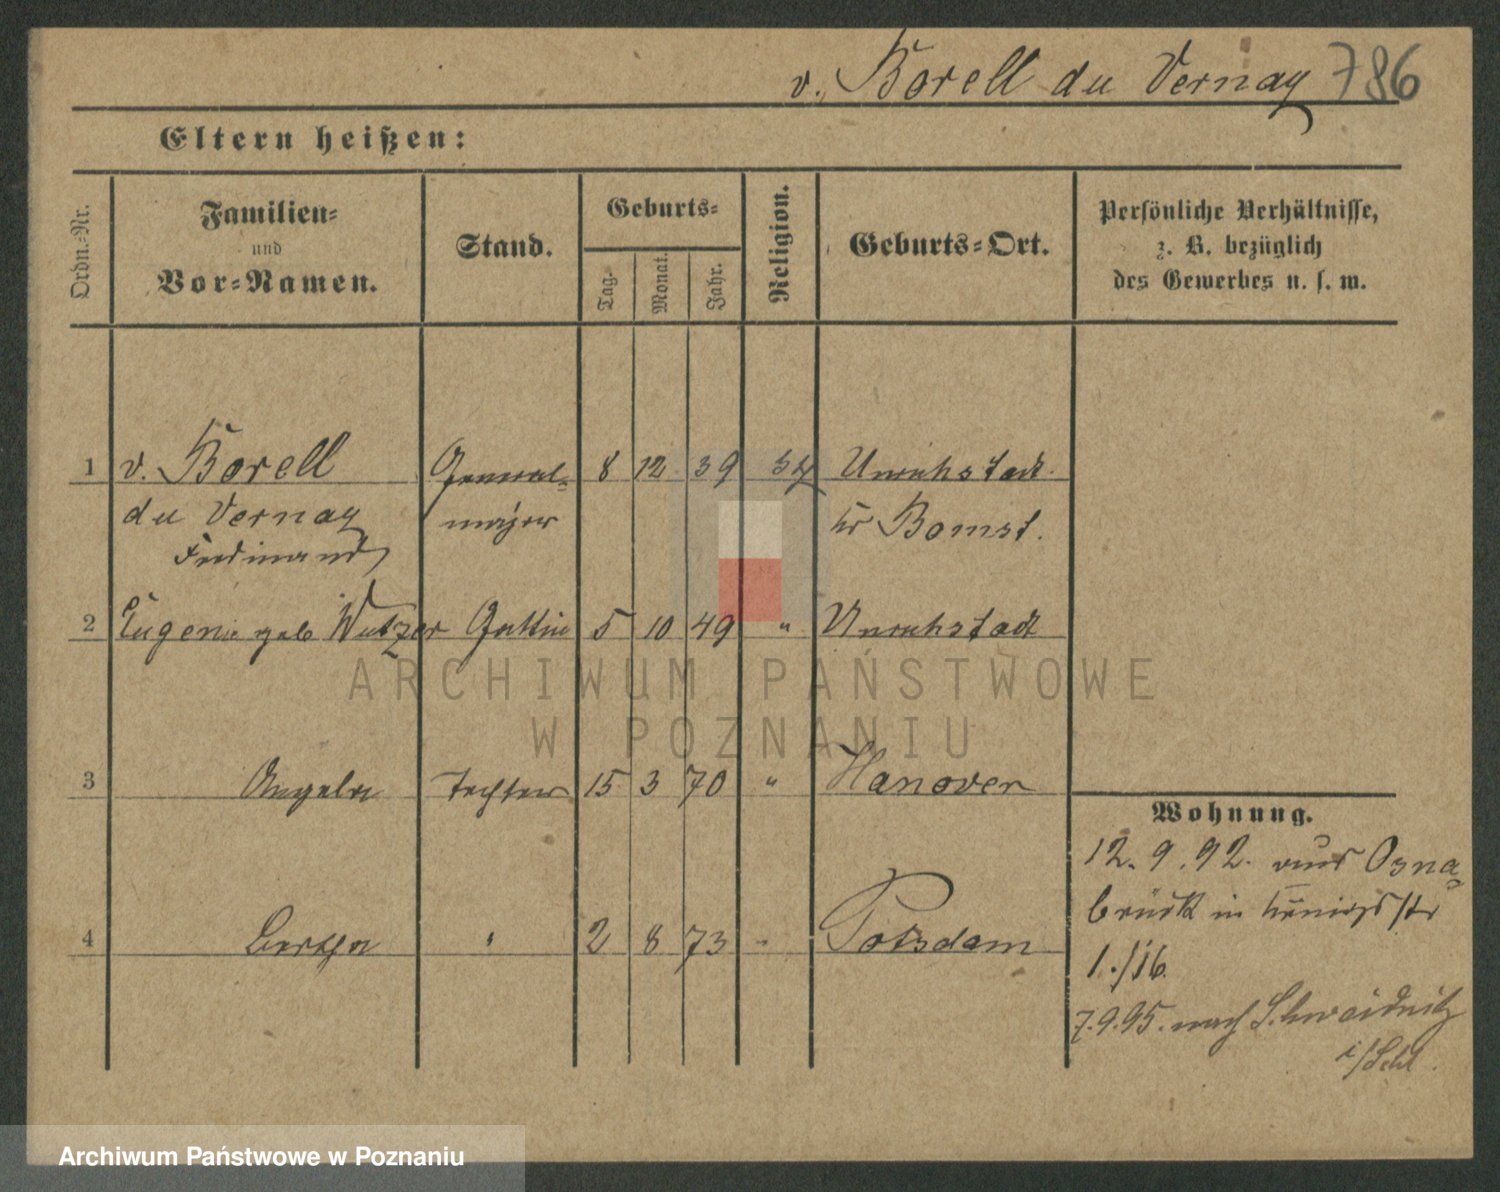 v. Borell du Vernay 786
Eltern heißen:
Ordn.-Nr.
Familien-
und
Vor-Namen.
Stand.
Geburts-
Tag.
Monat.
Jahr.
Religion.
Geburts-Ort.
Persönliche Verhältnisse,
z. B. bezüglich
des Gewerbes u. s. w.
1 v. Borell General- 8 12 39 Unruhstadt
du Vernay major Kr Bomst.
Ferdinand
2 Eugenie geb Wutzer Gattin 5 10 49 " Unruhstadt
ARCHIWUM PAŃSTWOWE
W POZNANIU
3 Angela Tochter 15 3 70 " Hanover
Wohnung.
12. 9. 92. aus Osna-
brück in Königsstr
4 Bertha " 2 8 73 " Potsdam
1./16.
7.9.95. nach Schweidnitz
i/Schl.
Archiwum Państwowe w Poznaniu